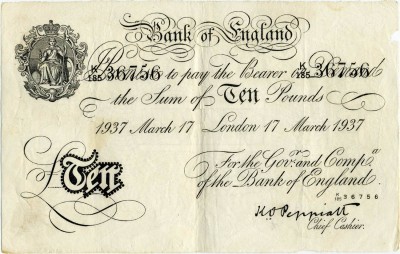 Bank of England
K/185 36756 K/185 36756
Promise to pay the Bearer on Demand
the Sum of Ten Pounds
1937 March 17 London 17 March 1937
For the Govr. and Compa.
£Ten of the Bank of England.
K/185 36756
K.O. Peppiatt
Chief Cashier.